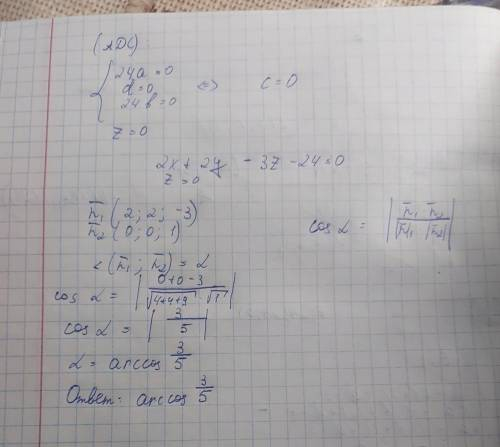 (ADC):
{ 24a = 0
d = 0
24b = 0
<=> c = 0
z = 0
2x + 2y - 3z - 24 = 0
z = 0
n̅₁ (2; 2; -3)
n̅₂ (0; 0; 1)
cos α = | n̅₁ n̅₂ / |n̅₁| |n̅₂| |
< (n̅₁; n̅₂) = α
cos α = | 0+0-3 / √4+4+9 · √1 |
cos α = | 3 / 5 |
α = arccos 3/5
Ответ: arccos 3/5